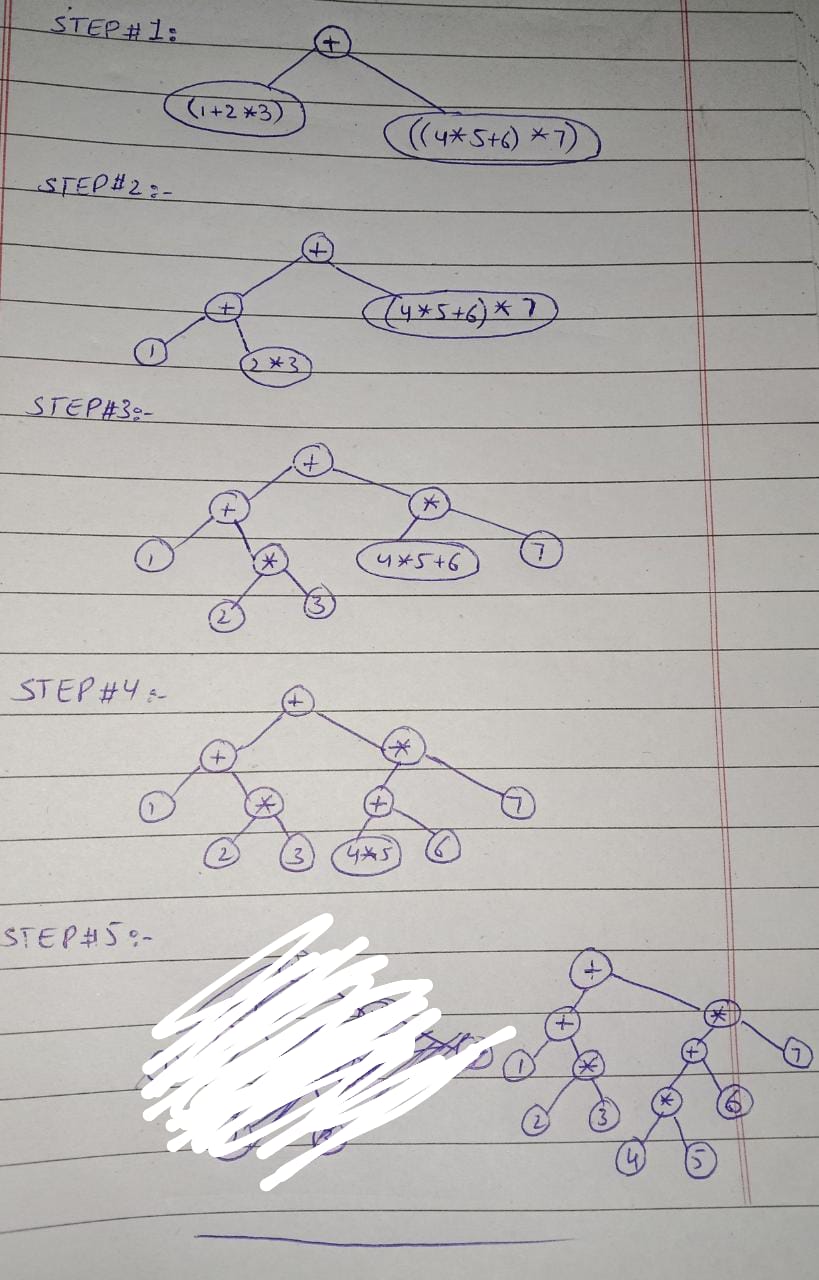 STEP#1:
+
(1+2*3)
((4*5+6)*7)
STEP#2:-
+
+
(4*5+6)*7
1
2*3
STEP#3:-
+
+ *
1 * 4*5+6 7
2 3
STEP#4:-
+
+ *
1 * + 7
2 3 4*5 6
STEP#5:-
+
+ *
1 * + 7
2 3 * 6
4 5